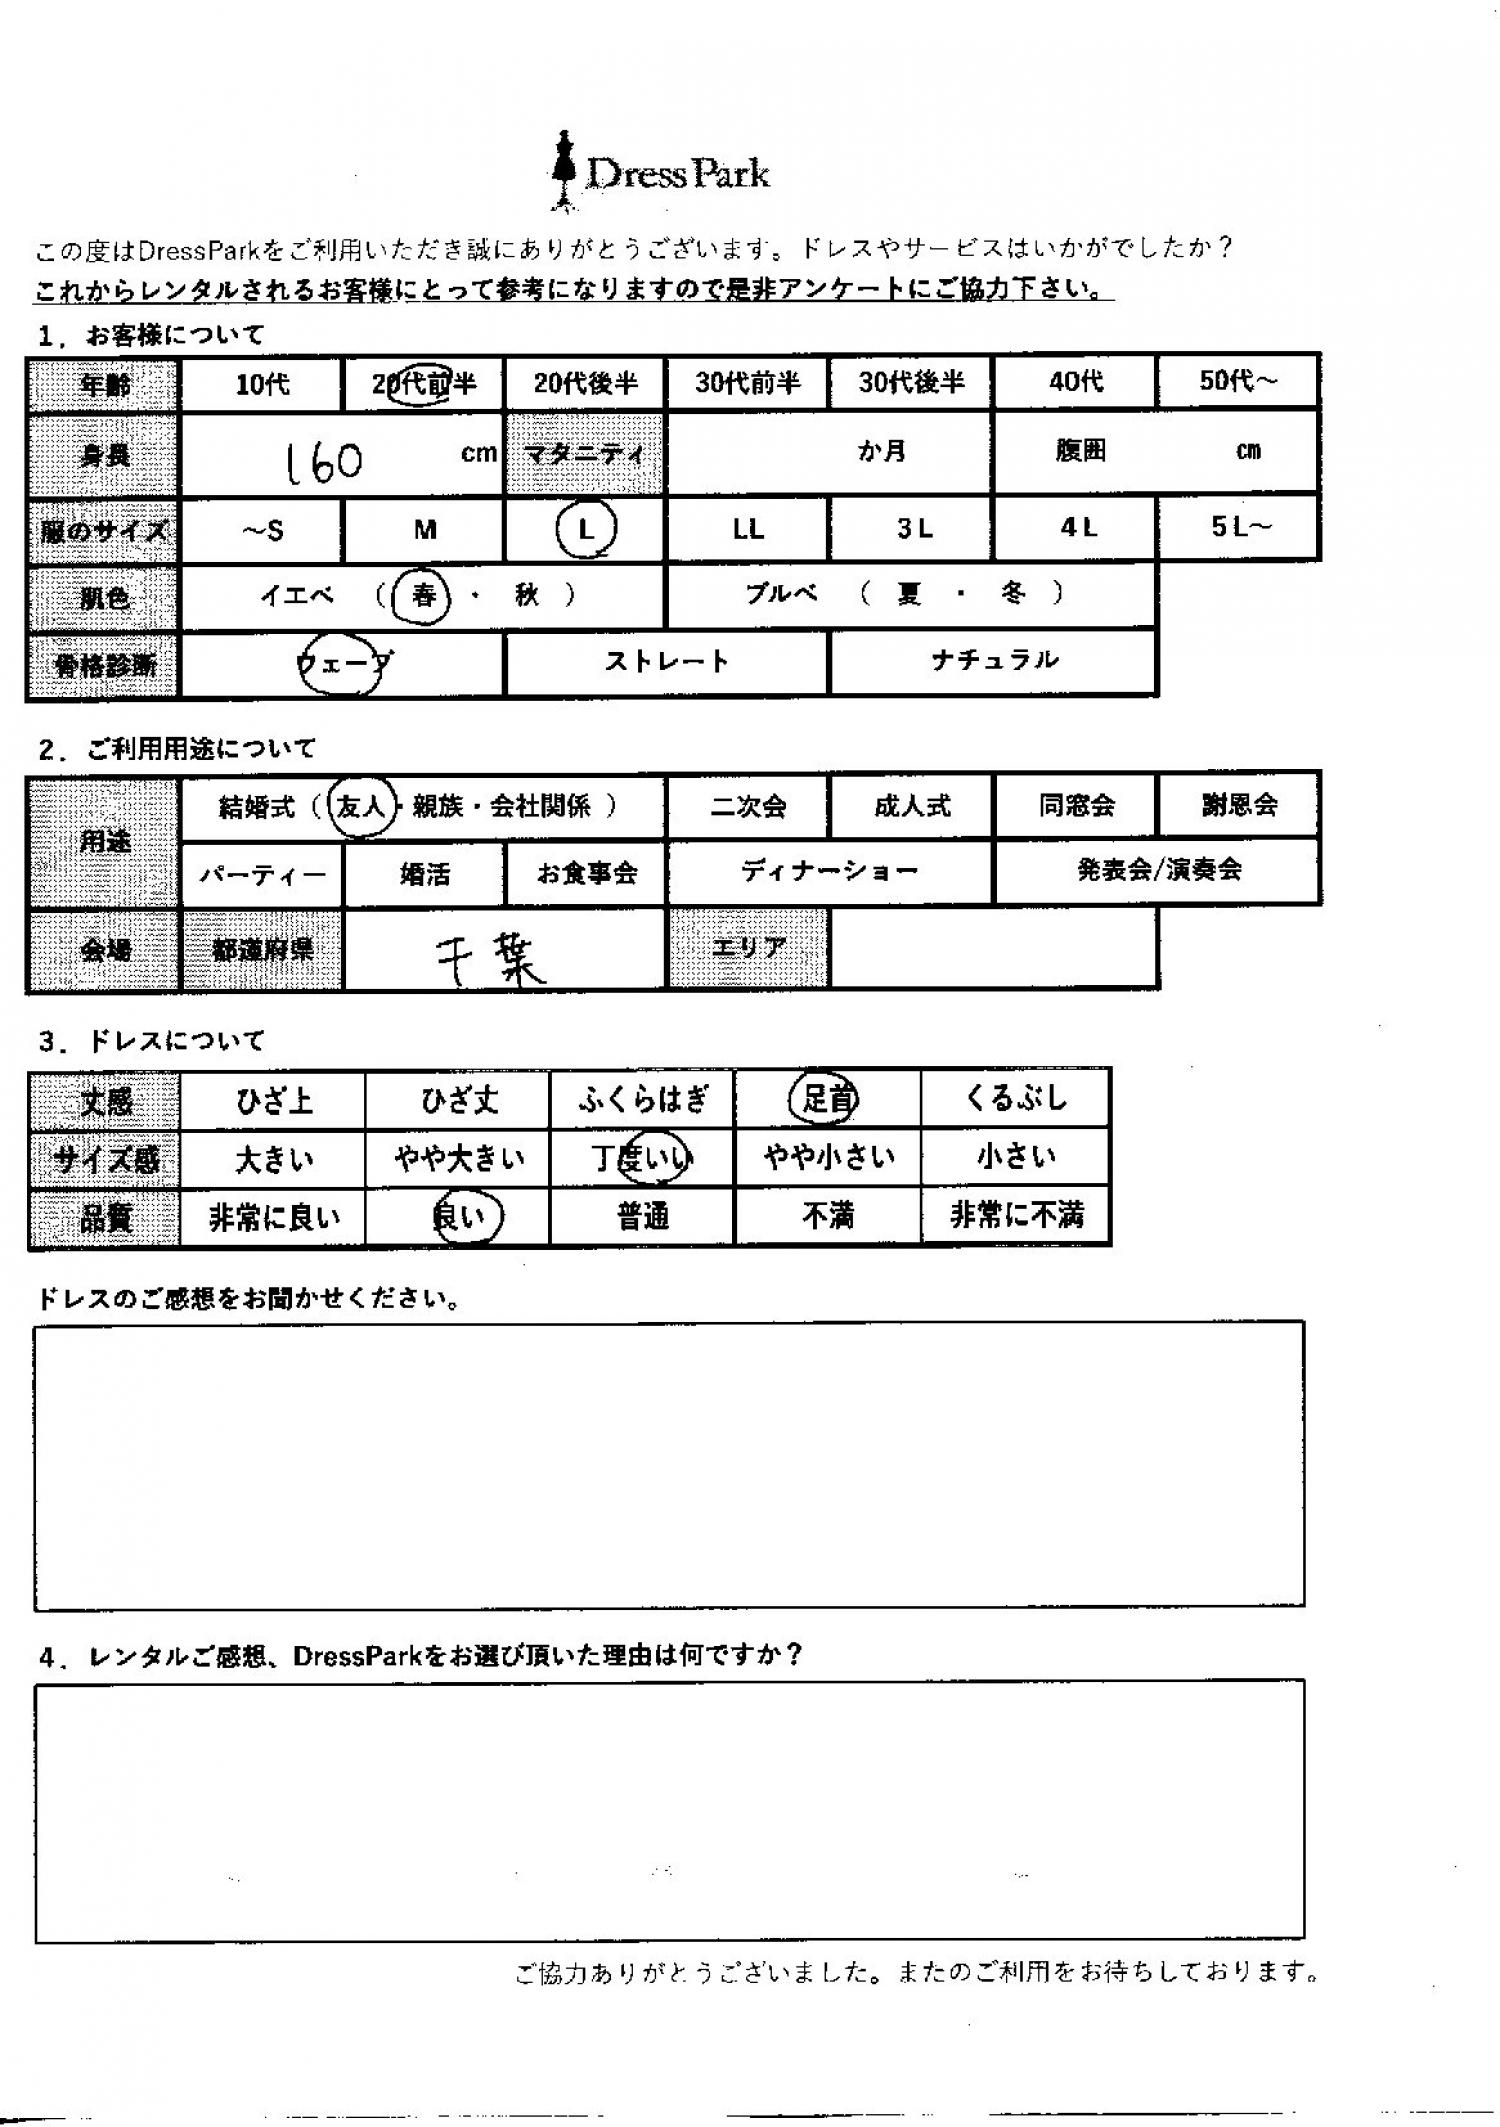 DressPark
この度はDressParkをご利用いただき誠にありがとうございます。ドレスやサービスはいかがでしたか？
これからレンタルされるお客様にとって参考になりますので是非アンケートにご協力下さい。
1．お客様について
年齢 10代 20代前半 20代後半 30代前半 30代後半 40代 50代～
身長 160 cm マタニティ か月 腹囲 cm
服のサイズ ～S M L LL 3L 4L 5L～
肌色 イエベ （ 春 ・ 秋 ） ブルベ （ 夏 ・ 冬 ）
骨格診断 ウェーブ ストレート ナチュラル
2．ご利用用途について
用途 結婚式（ 友人・親族・会社関係 ） 二次会 成人式 同窓会 謝恩会
パーティー 婚活 お食事会 ディナーショー 発表会/演奏会
会場 都道府県 千葉 エリア
3．ドレスについて
丈感 ひざ上 ひざ丈 ふくらはぎ 足首 くるぶし
サイズ感 大きい やや大きい 丁度いい やや小さい 小さい
品質 非常に良い 良い 普通 不満 非常に不満
ドレスのご感想をお聞かせください。
4．レンタルご感想、DressParkをお選び頂いた理由は何ですか？
ご協力ありがとうございました。またのご利用をお待ちしております。